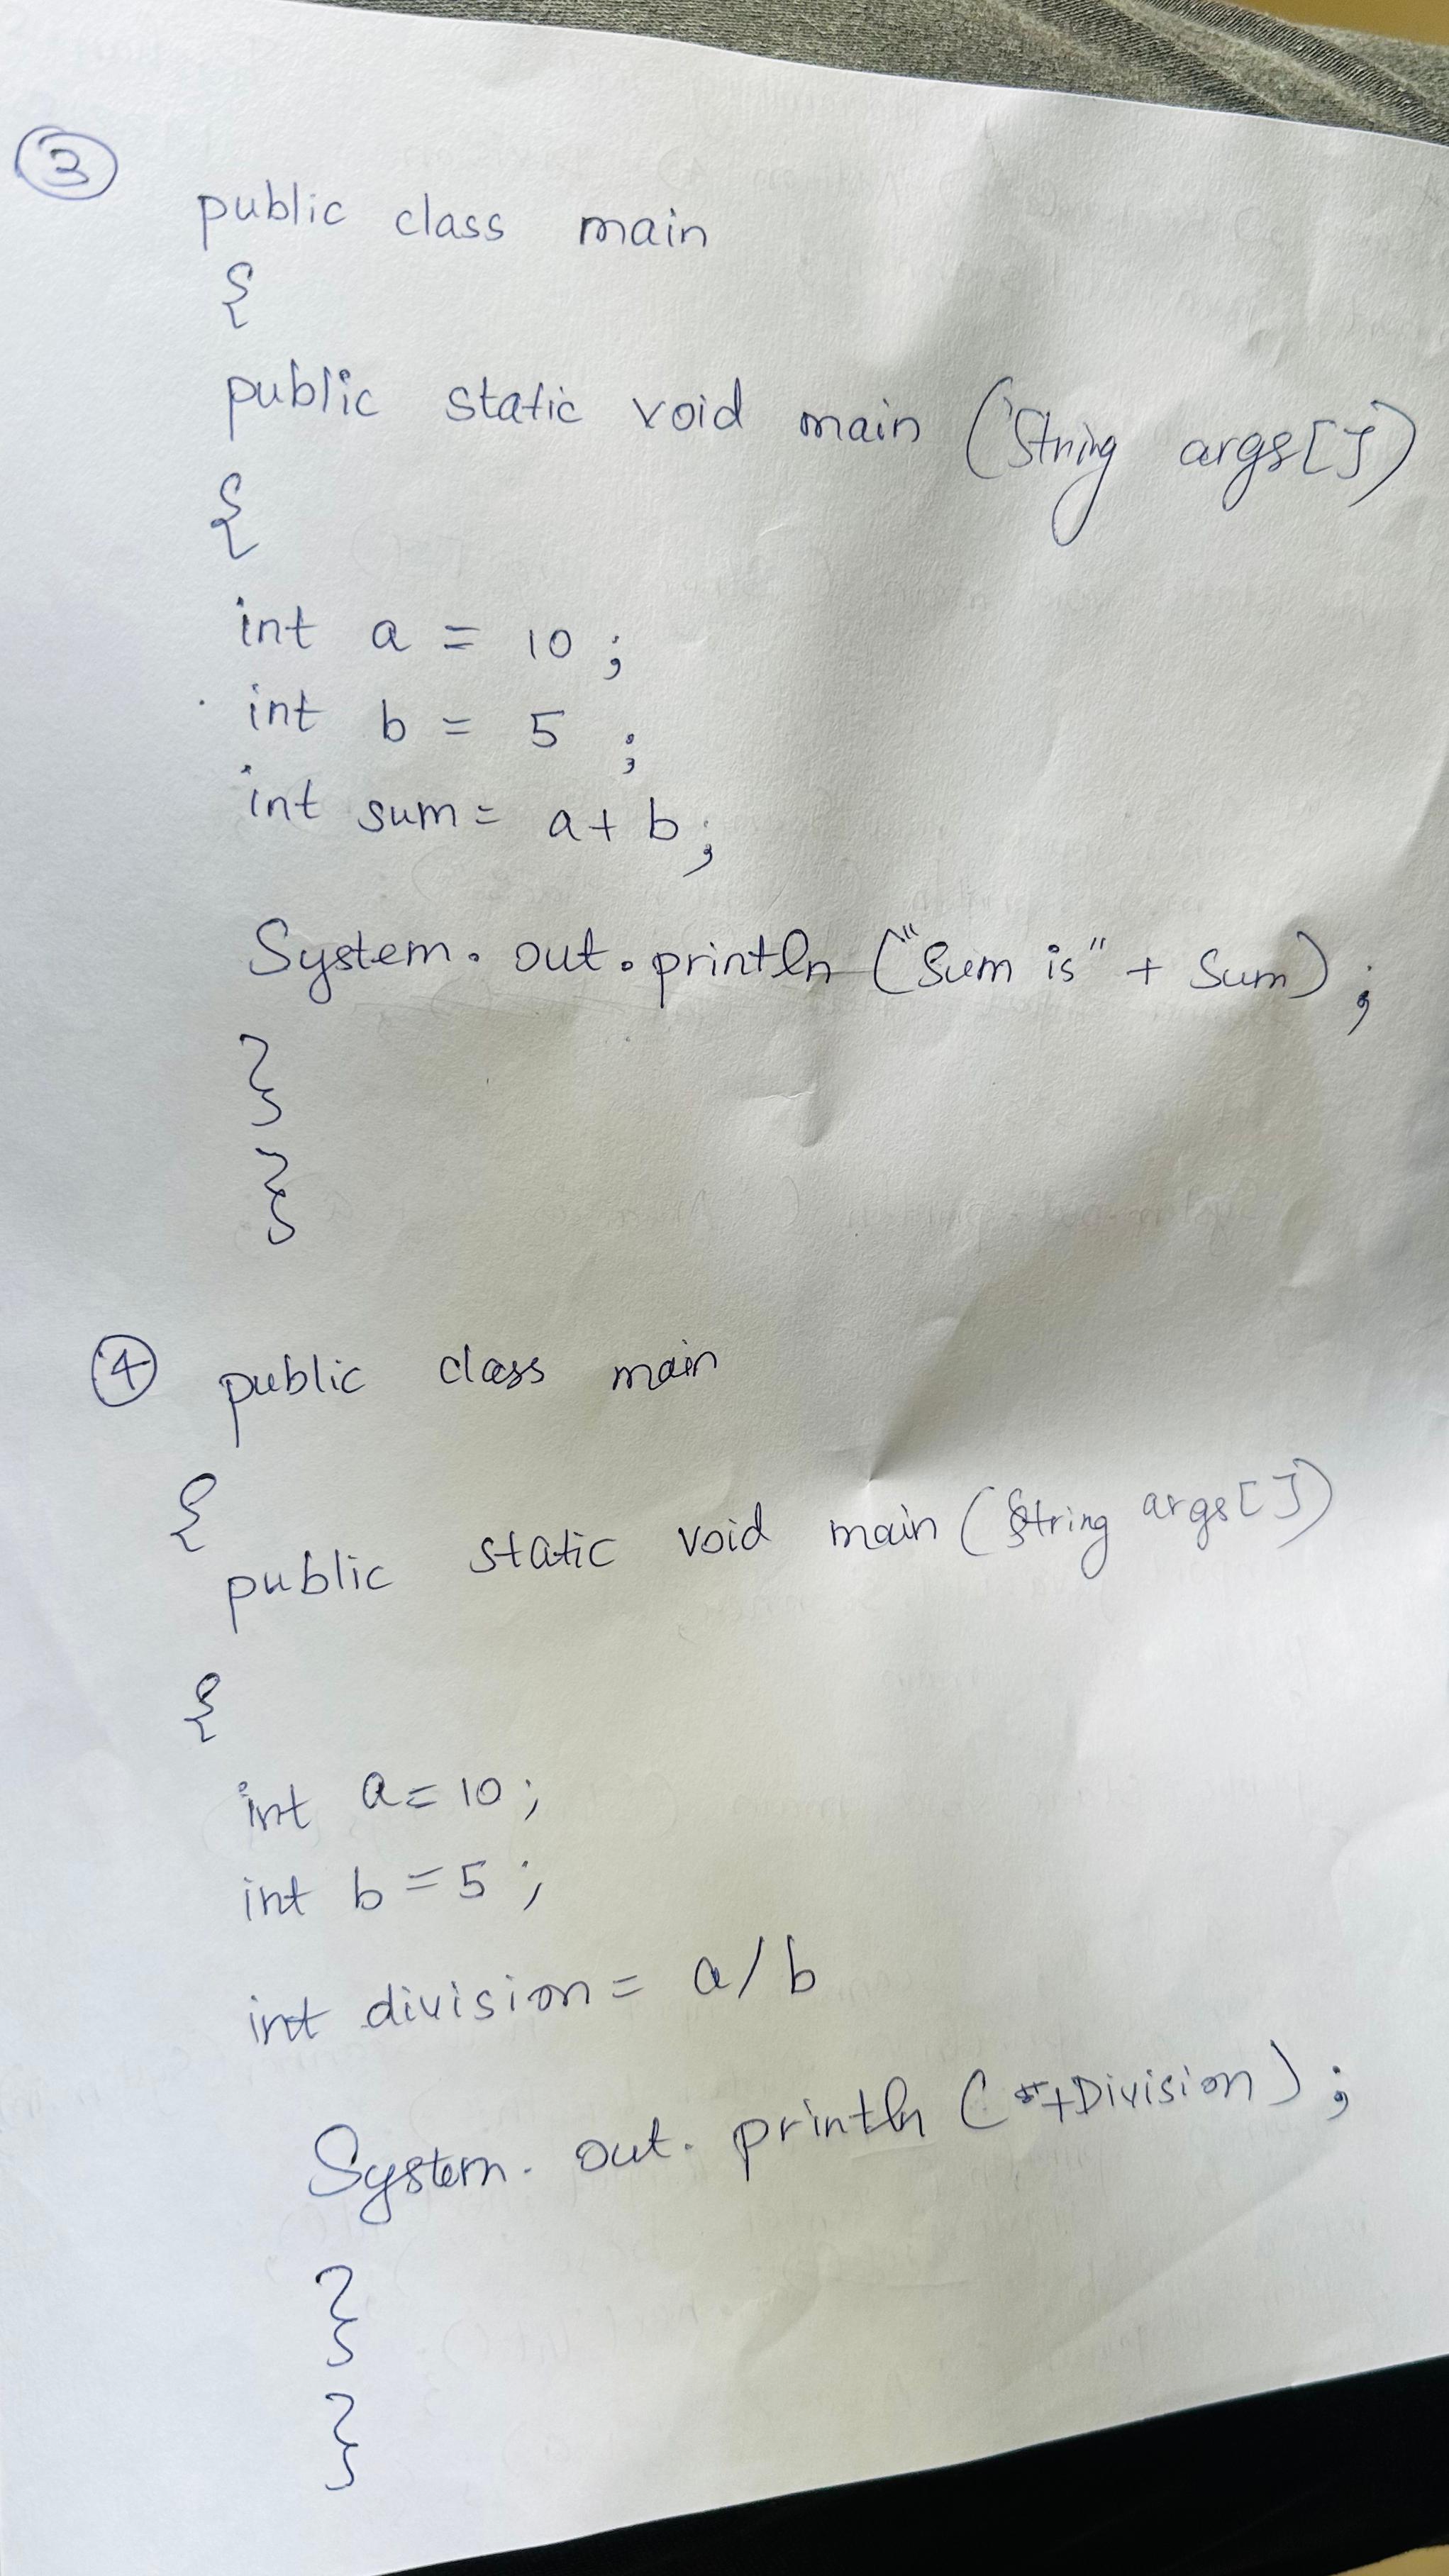 3
public class main
{
public static void main (String args[])
{
int a = 10 ;
int b = 5 ;
int sum = a + b;
System. out. println ("Sum is" + Sum) ;
}
}
4 public class main
{
public static void main (String args[])
{
int a = 10 ;
int b = 5 ;
int division = a/b
System. out. println ( +Division) ;
}
}